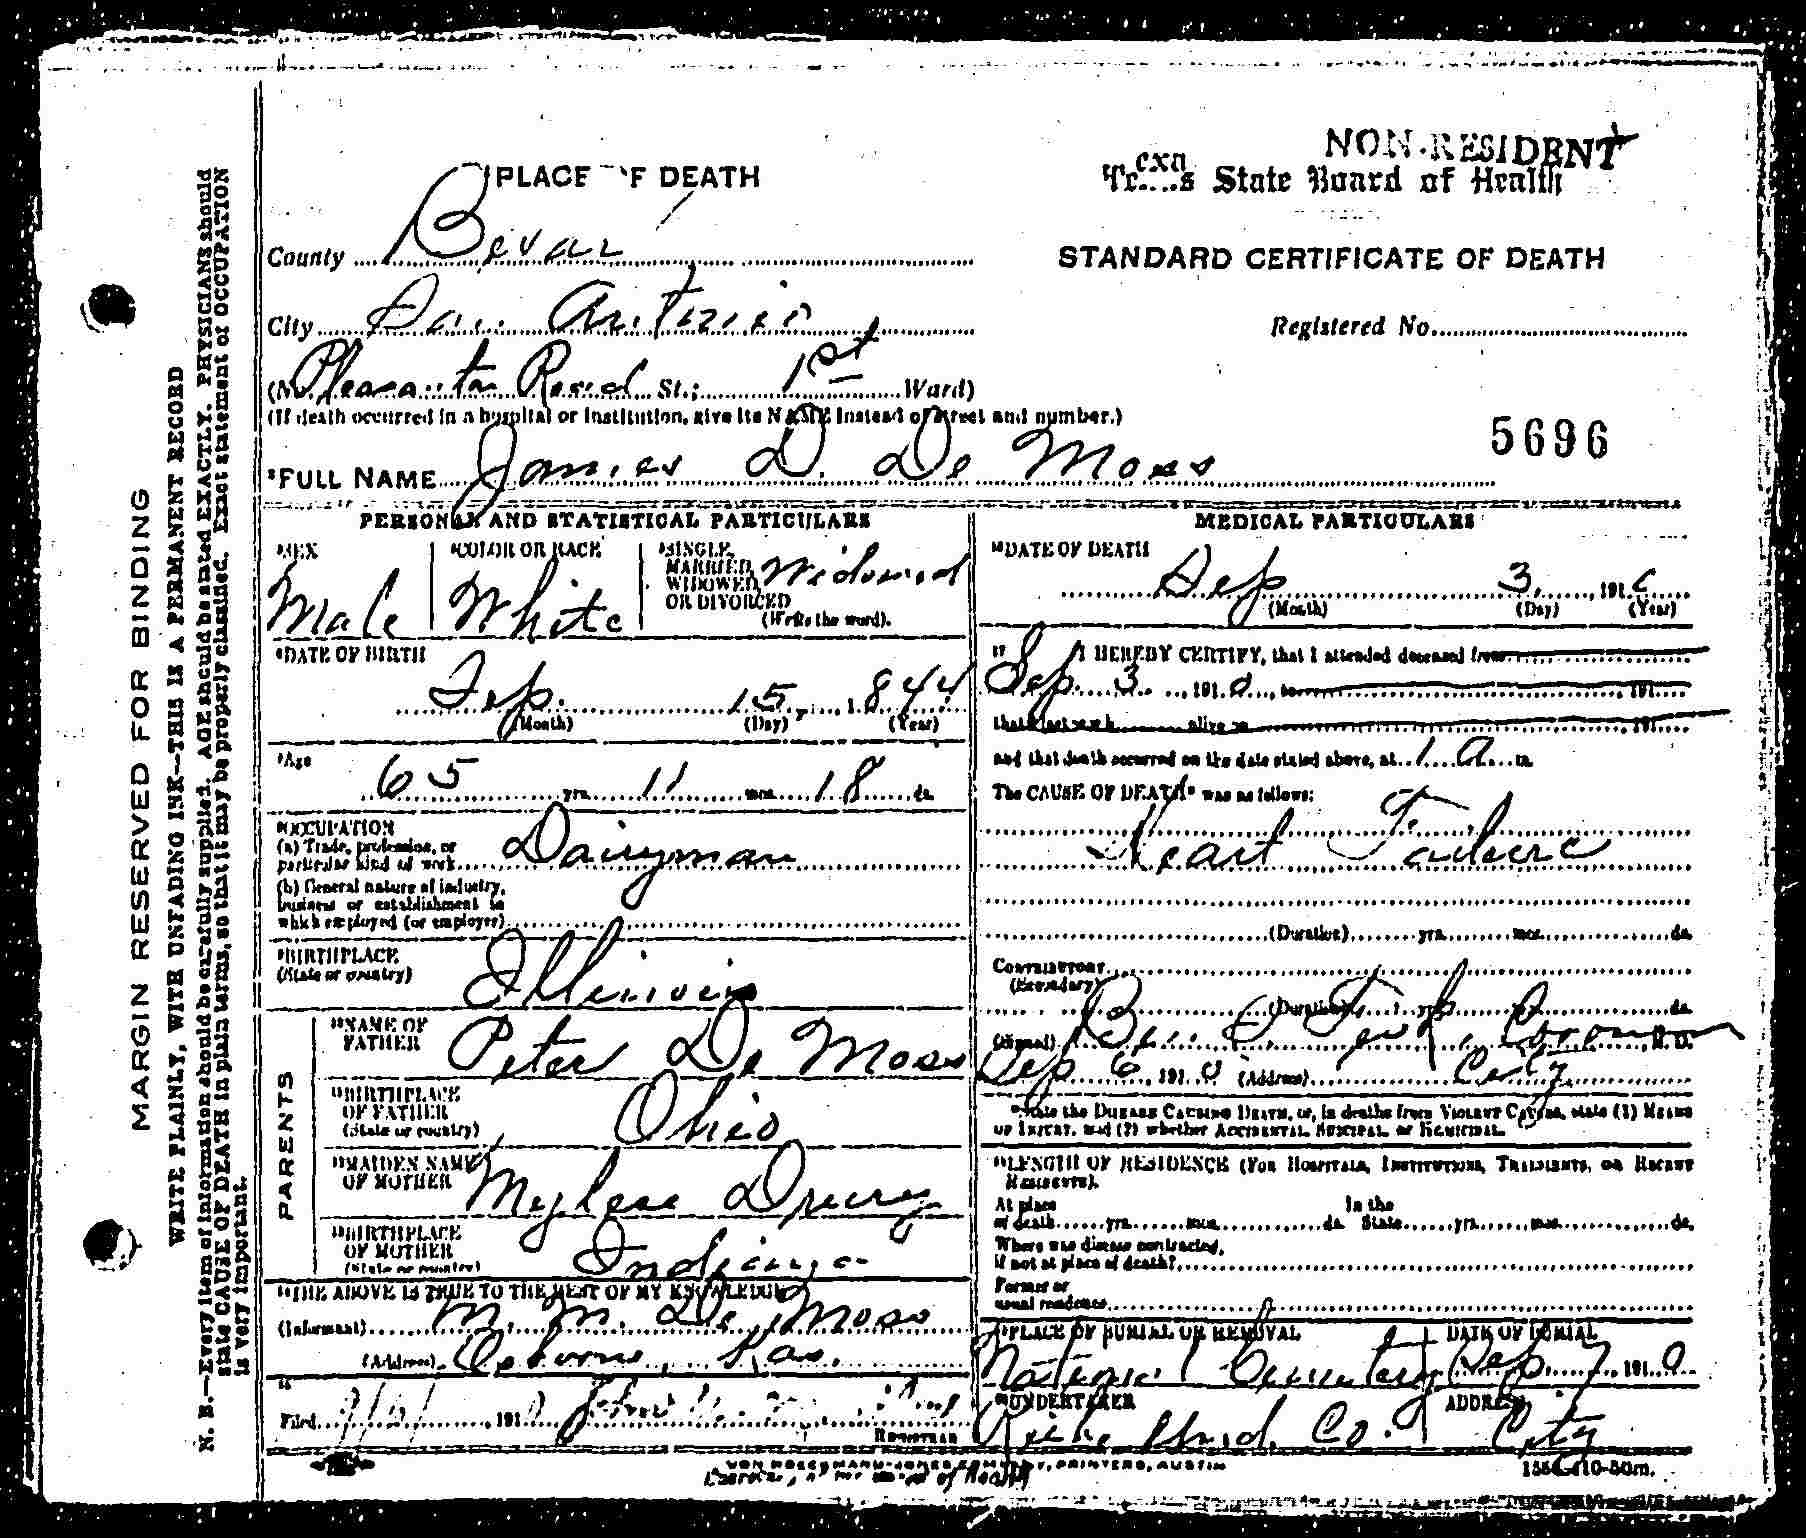 NON-RESIDENT
exa
PLACE OF DEATH
Texas State Board of Health
STANDARD CERTIFICATE OF DEATH
County Bexar
City San Antonio
Registered No.
(N Pleasanton Road St.; 1st Ward)
(If death occurred in a hospital or institution, give its NAME instead of street and number.)
5696
FULL NAME James D. De Moss
PERSONAL AND STATISTICAL PARTICULARS
SEX Male
COLOR OR RACE White
SINGLE, MARRIED, WIDOWED, OR DIVORCED Widowed
(Write the word).
DATE OF BIRTH
Sep. 15, 1844
(Month) (Day) (Year)
Age
65 yrs. 11 mos. 18 ds.
OCCUPATION
(a) Trade, profession, or
particular kind of work Dairyman
(b) General nature of industry,
business or establishment in
which employed (or employer)
BIRTHPLACE
(State or country) Illinois
PARENTS
NAME OF FATHER Peter De Moss
BIRTHPLACE OF FATHER
(State or country) Ohio
MAIDEN NAME OF MOTHER Drury
BIRTHPLACE OF MOTHER
(State or country) Indiana
THE ABOVE IS TRUE TO THE BEST OF MY KNOWLEDGE
(Informant) M. M. De Moss
(Address) Osborne, Kas.
Filed 191
REGISTRAR
MEDICAL PARTICULARS
DATE OF DEATH
Sep 3, 191
(Month) (Day) (Year)
I HEREBY CERTIFY, that I attended deceased from
Sep. 3, 1910, to 191
that I last saw h alive on 191
and that death occurred on the date stated above, at 1 a m.
The CAUSE OF DEATH* was as follows:
Heart Failure
(Duration) yrs. mos. ds.
CONTRIBUTORY
(Secondary)
(Duration) yrs. ds.
(Signed) Ben S. Fisk, Coroner M. D.
Sep 6, 1910 (Address) City
*State the DISEASE CAUSING DEATH, or, in deaths from VIOLENT CAUSES, state (1) MEANS
OF INJURY, and (2) whether ACCIDENTAL, SUICIDAL or HOMICIDAL.
LENGTH OF RESIDENCE (FOR HOSPITALS, INSTITUTIONS, TRANSIENTS, OR RECENT
RESIDENTS).
At place In the
of death yrs. mos. ds. State yrs. mos. ds.
Where was disease contracted,
if not at place of death?
Former or
usual residence
PLACE OF BURIAL OR REMOVAL
National Cemetery
DATE OF BURIAL
Sep 7 1910
UNDERTAKER
Riebe Und. Co.
ADDRESS
City
VON BOECKMANN-JONES COMPANY, PRINTERS, AUSTIN
of Health
1554-410-50m.
MARGIN RESERVED FOR BINDING
WRITE PLAINLY, WITH UNFADING INK—THIS IS A PERMANENT RECORD
N. B.—Every item of information should be carefully supplied. AGE should be stated EXACTLY. PHYSICIANS should
state CAUSE OF DEATH in plain terms, so that it may be properly classified. Exact statement of OCCUPATION
is very important.